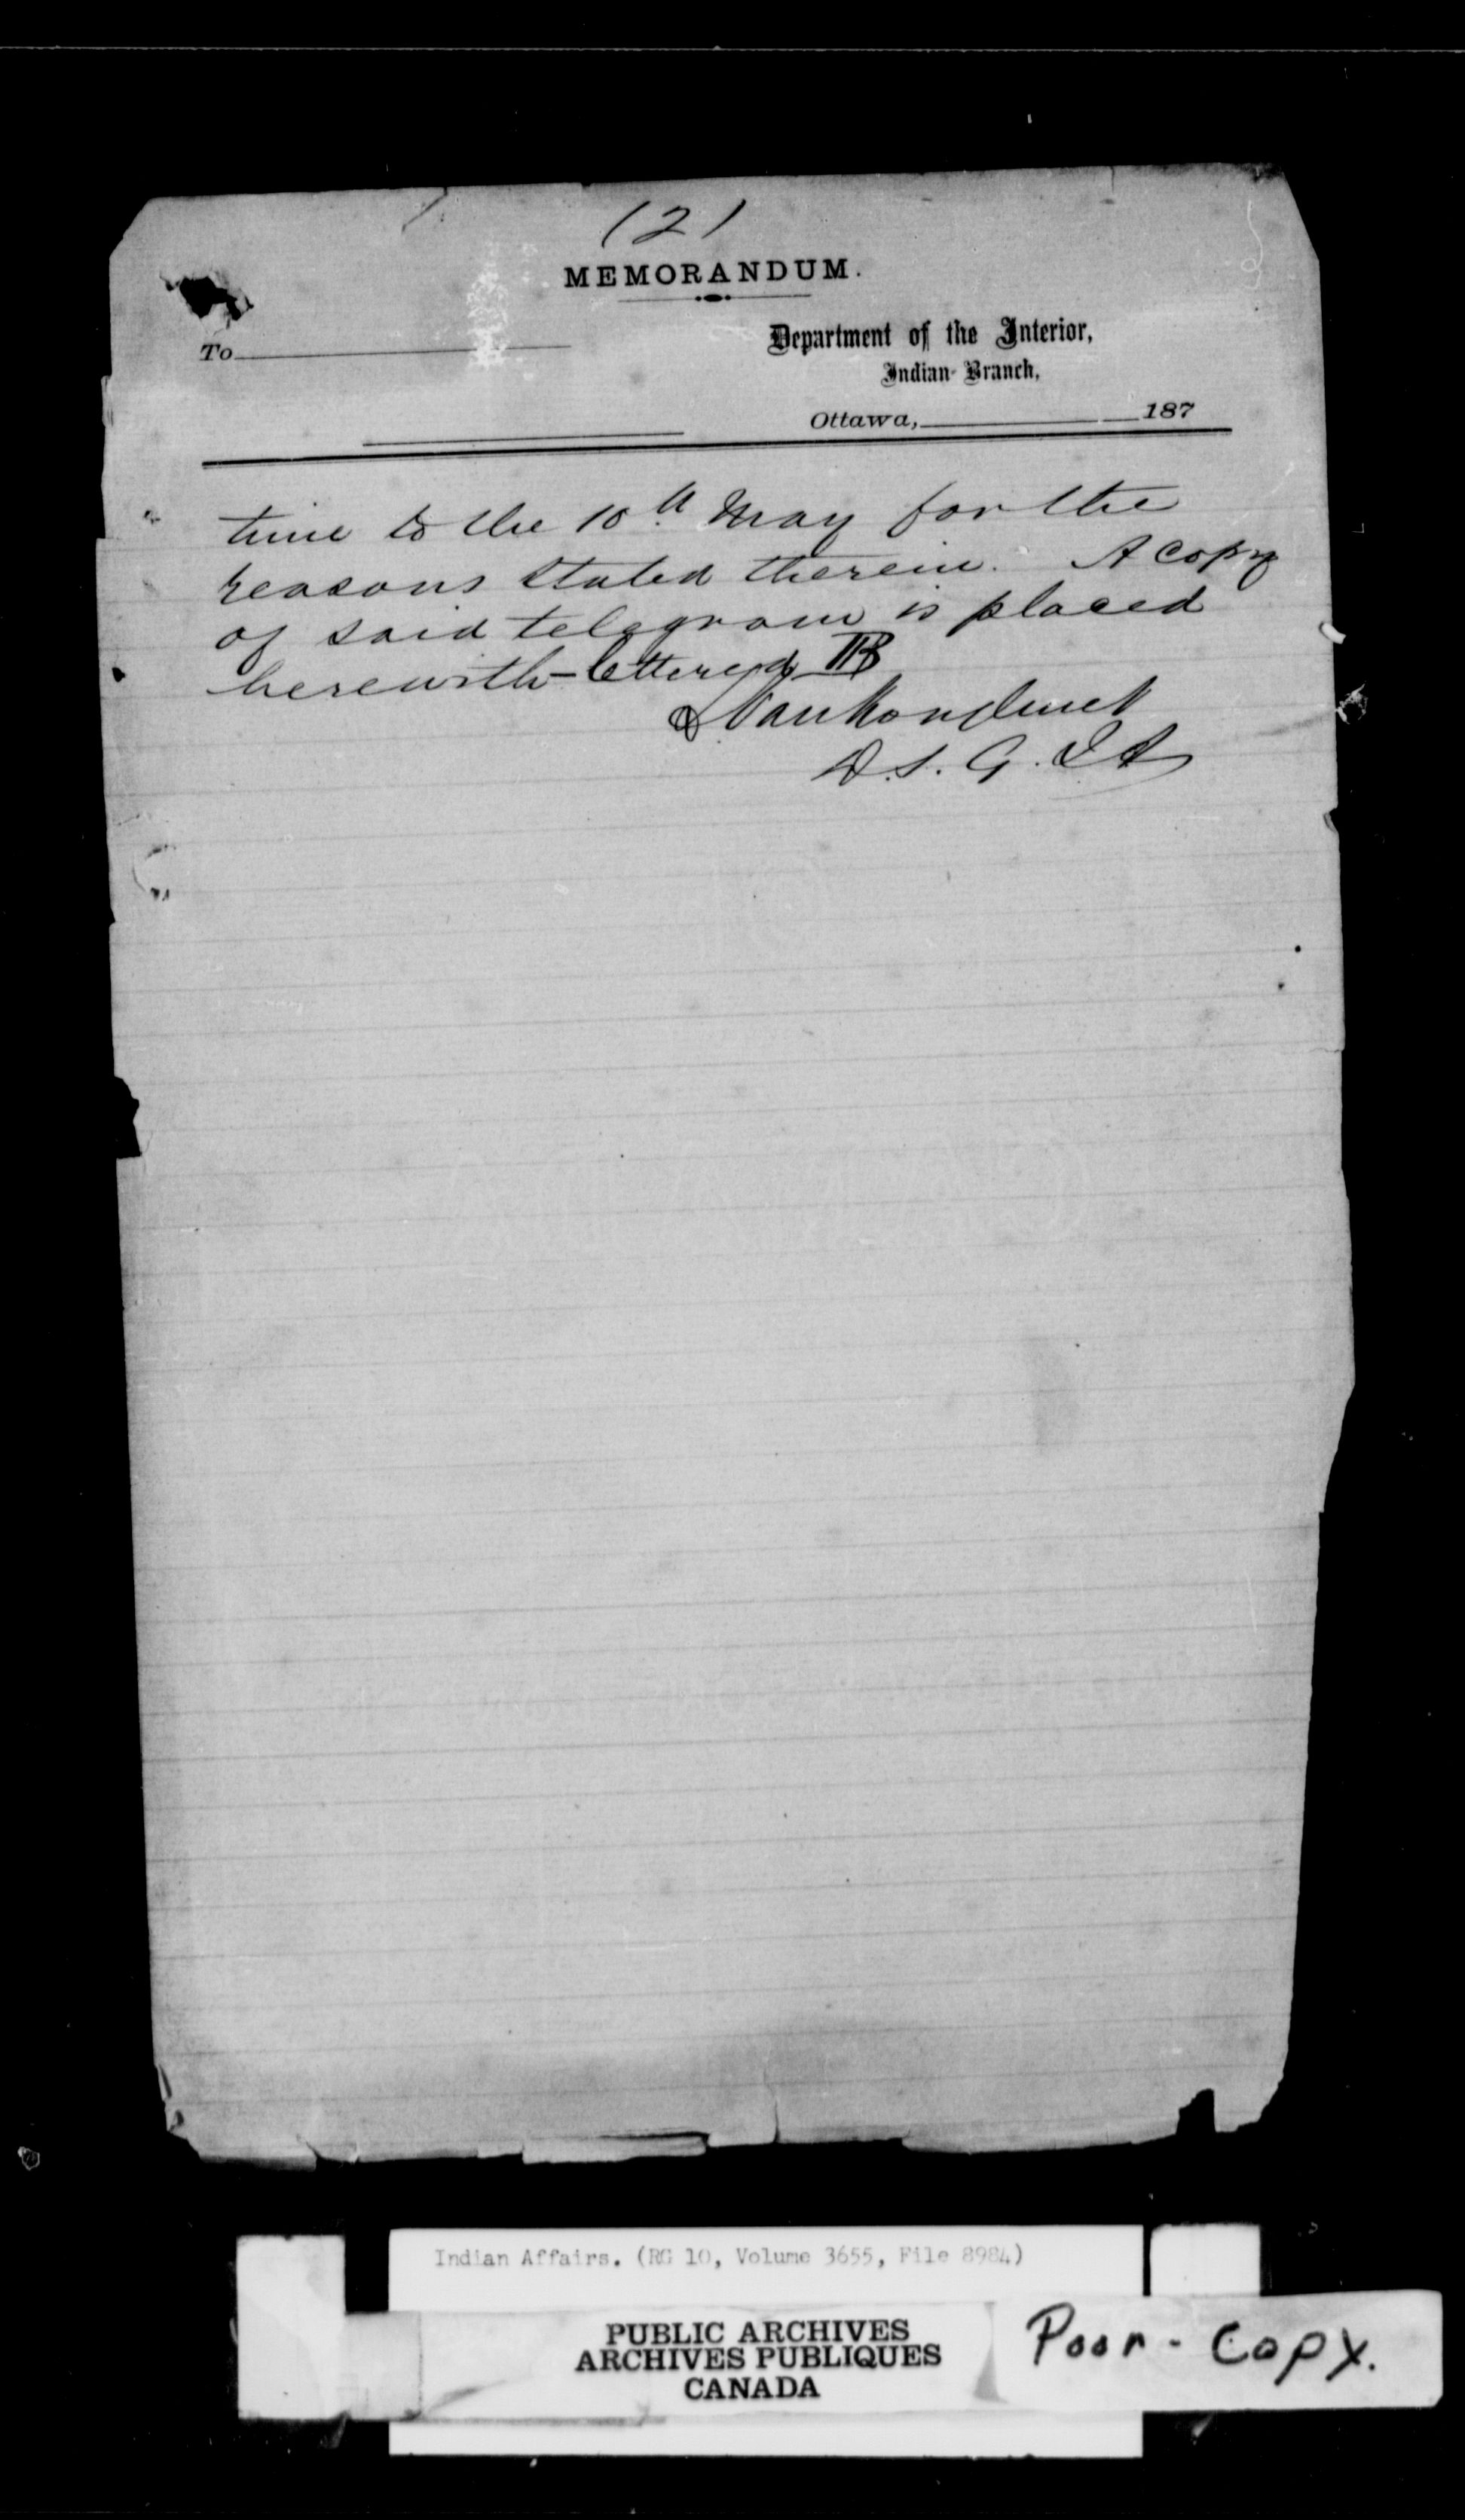 (2)
MEMORANDUM.
To
Department of the Interior,
Indian Branch,
Ottawa, 187
time to the 10th May for the
reasons stated therein. A copy
of said telegram is placed
herewith - lettered B
L Vankoughnet
D.S.G. I A
Indian Affairs. (RG 10, Volume 3655, File 8984)
PUBLIC ARCHIVES
ARCHIVES PUBLIQUES
CANADA
Poor - Copy.